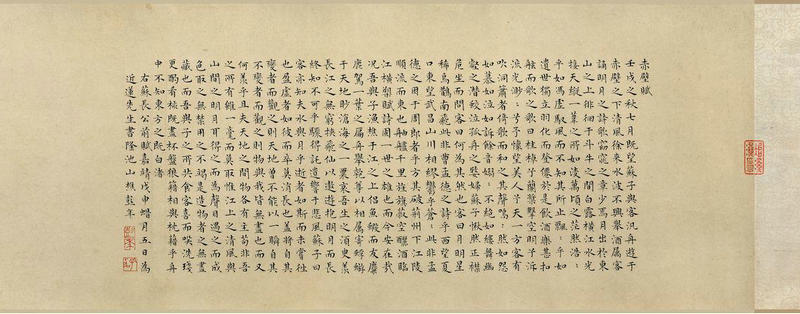 赤壁賦
壬戌之秋七月既望蘇子與客汎舟遊于
赤壁之下清風徐來水波不興舉酒屬客
誦明月之詩歌窈窕之章少焉月出於東
山之上徘徊于斗牛之間白露橫江水光
接天縱一葦之所如凌萬頃之茫然浩:
乎如馮虛馭風而不知其所止飄:乎如
遺世獨立羽化而登僊於是飲酒樂甚扣
舷而歌之歌曰桂棹兮蘭槳擊空明兮泝
流光渺:兮予懷望美人兮天一方客有
吹洞簫者倚歌而和之其聲嗚:然如怨
如慕如泣如訴餘音嫋:不絕如縷舞幽
壑之潛蛟泣孤舟之嫠婦蘇子愀然正襟
危坐而問客曰何為其然也客曰月明星
稀烏鵲南飛此非曹孟德之詩乎西望夏
口東望武昌山川相繆鬱乎蒼:此非孟
德之困于周郎者乎方其破荊州下江陵
順流而東也舳艫千里旌旗蔽空釃酒臨
江橫槊賦詩固一世之雄也而今安在哉
況吾與子漁樵于江之上侶魚蝦而友麋
鹿駕一葉之扁舟舉匏尊以相屬寄蜉蝣
于天地眇滄海之一粟哀吾生之須臾羨
長江之無窮挾飛仙以遨遊抱明月而長
終知不可乎驟得託遺響于悲風蘇子曰
客亦知夫水與月乎逝者如斯而未嘗往
也盈虛者如彼而卒莫消長也蓋將自其
變者而觀之則天地曾不能以一瞬自其
不變者而觀之則物與我皆無盡也而又
何羨乎且夫天地之間物各有主苟非吾
之所有雖一毫而莫取惟江上之清風與
山間之明月耳得之而為聲目遇之而成
色取之無禁用之不竭是造物者之無盡
藏也而吾與子之所共食客喜而笑洗殘
更酌肴核既盡杯盤狼籍相與枕藉乎舟
中不知東方之既白
右蘇長公前賦嘉靖戊申蜡月五日為
近蓮先生書隆池山樵彭年